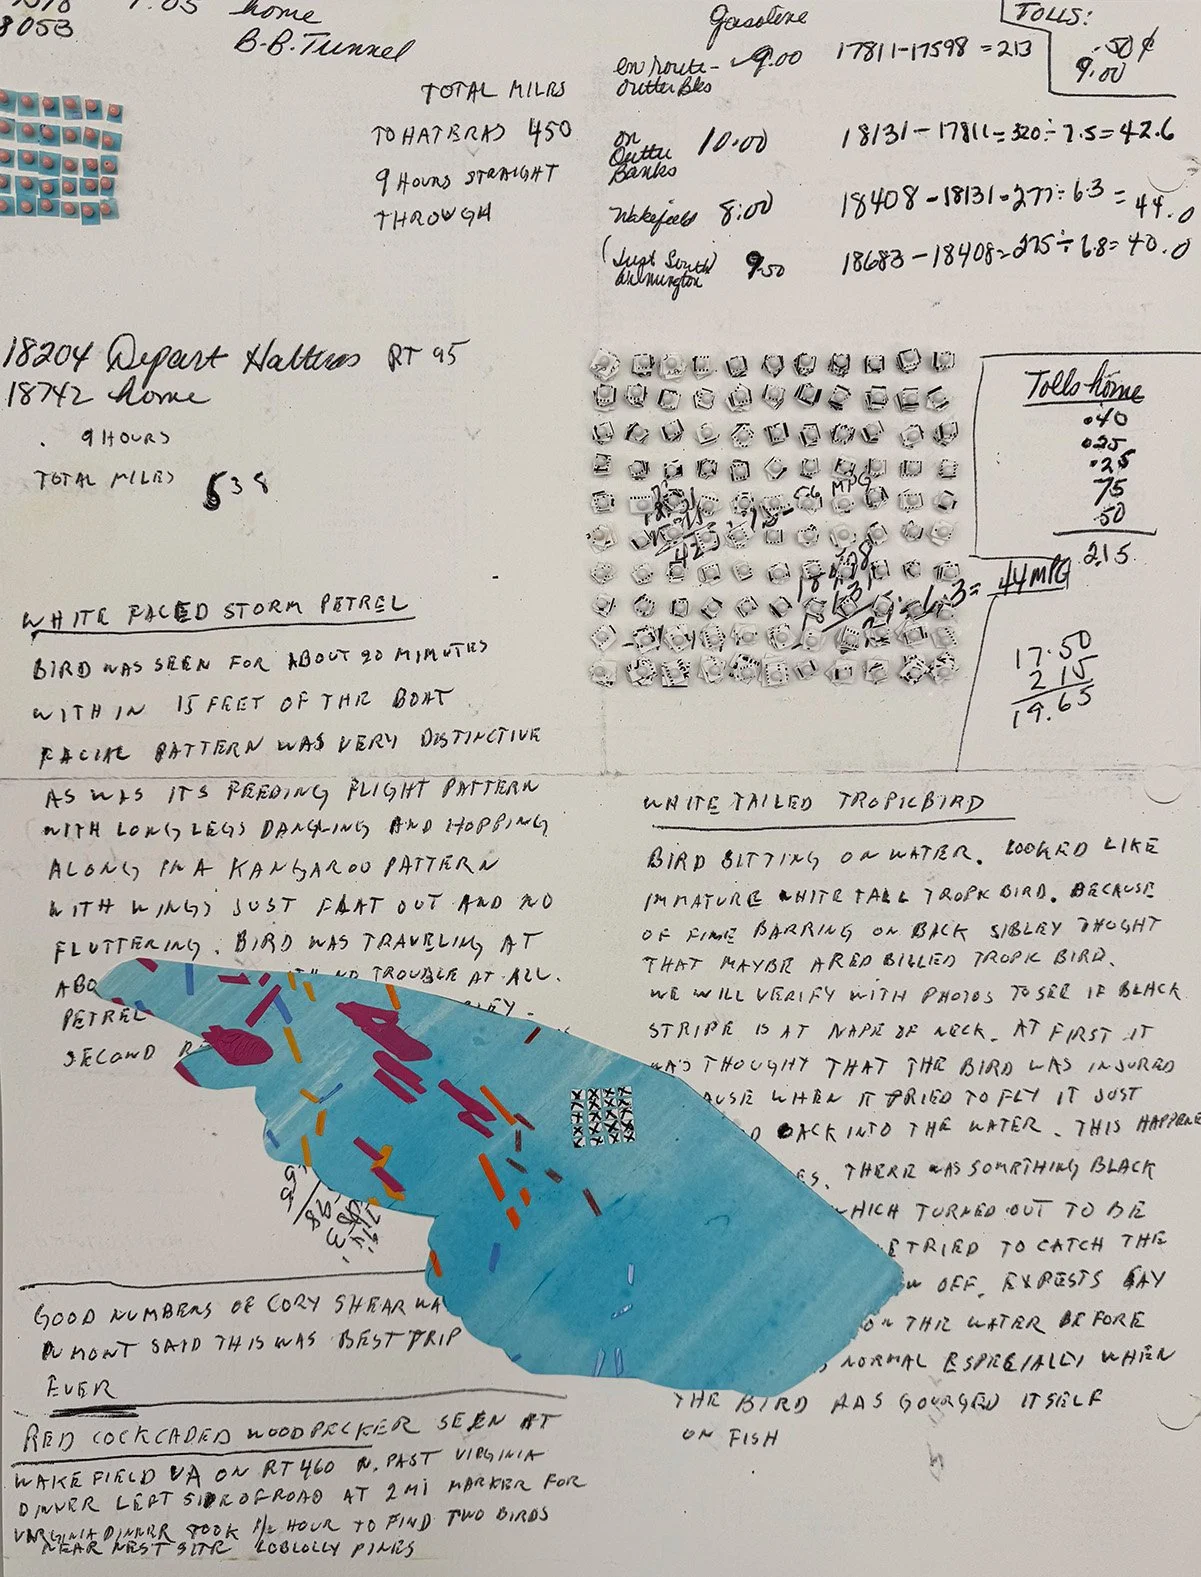 8053
7:05 home
B.B. Tunnel
TOTAL MILES
TO HATERAS 450
9 HOURS STRAIGHT
THROUGH
Gasoline
en route - 9.00 17811-17598 = 213
outter Bks
on Outter Banks 10.00 18131 - 17811 = 320 ÷ 7.5 = 42.6
Wakefield 8.00 18408 - 18131 = 277 ÷ 6.3 = 44.0
(Just South Wilmington) 9.50 18683 - 18408 = 275 ÷ 6.8 = 40.0
TOLLS:
.50 ¢
9.00
18204 Depart Hatteras RT 95
18742 home
9 HOURS
TOTAL MILES 538
Tolls home
.40
.25
.25
75
.50
2.15
MPG
6.3 = 44 MPG
17.50
2 15
19.65
WHITE FACED STORM PETREL
BIRD WAS SEEN FOR ABOUT 20 MIMUTES
WITH IN 15 FEET OF THE BOAT
FACIAL PATTERN WAS VERY DISTINCTIVE
AS WAS ITS FEEDING FLIGHT PATTERN
WITH LONG LEGS DANGLING AND HOPPING
ALONG IN A KANGAROO PATTERN
WITH WINGS JUST FLAT OUT AND NO
FLUTTERING. BIRD WAS TRAVELING AT
ABO TH NO TROUBLE AT ALL.
PETREL LEY.
SECOND R
GOOD NUMBERS OF CORY SHEARWA
DUMONT SAID THIS WAS BEST TRIP
EVER
RED COCKCADED WOODPECKER SEEN AT
WAKEFIELD VA ON RT 460 N. PAST VIRGINIA
DINNER LEFT SIDE OF ROAD AT 2 MI MARKER FOR
VARGINIA DINNER TOOK 1/2 HOUR TO FIND TWO BIRDS
NEAR NEST SITE LOBLOLLY PINES
WHITE TAILED TROPICBIRD
BIRD SITTING ON WATER. LOOKED LIKE
IMMATURE WHITE TAIL TROPIC BIRD. BECAUSE
OF FINE BARRING ON BACK SIBLEY THOGHT
THAT MAYBE A RED BILLED TROPIC BIRD.
WE WILL VERIFY WITH PHOTOS TO SEE IF BLACK
STRIPE IS AT NAPE OF NECK. AT FIRST IT
WAS THOUGHT THAT THE BIRD WAS INJURED
AUSE WHEN IT TRIED TO FLY IT JUST
D BACK INTO THE WATER. THIS HAPPENE
ES. THERE WAS SOMETHING BLACK
HICH TURNED OUT TO BE
E TRIED TO CATCH THE
W OFF. EXPESTS SAY
ON THE WATER BEFORE
S NORMAL ESPECIALLY WHEN
THE BIRD HAS GOURGED ITSELF
ON FISH